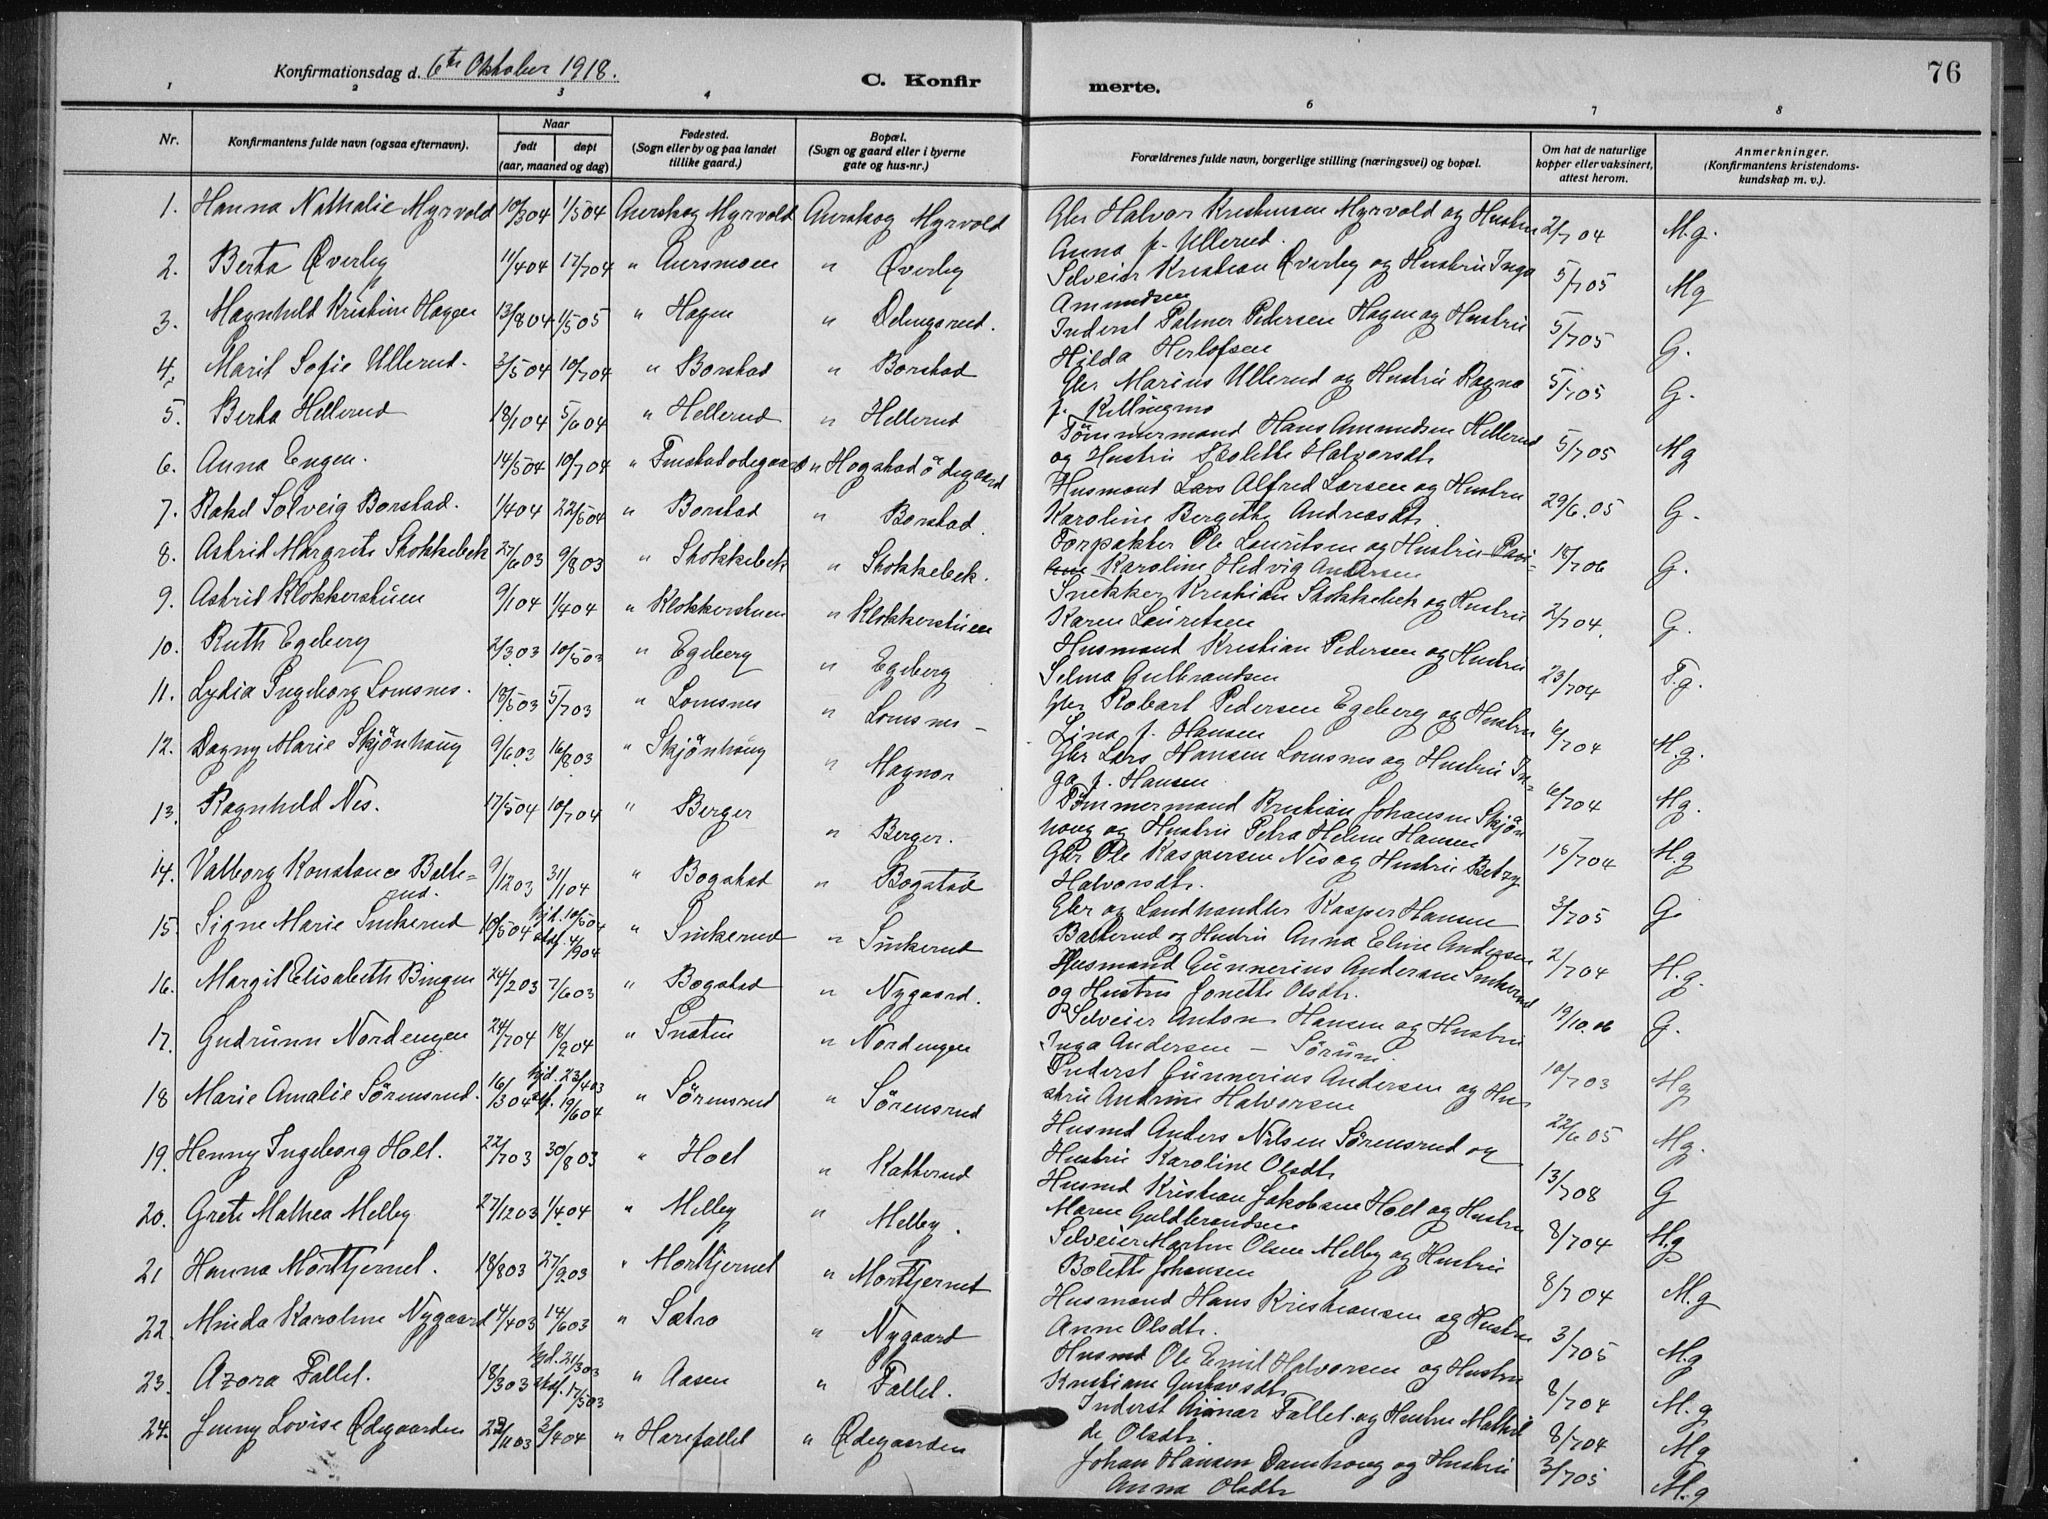 76
Konfirmationsdag d. 6te Oktober 1918.
C. Konfirmerte.
1 2 3 4 6 7 8
Nr.
Konfirmantens fulde navn (ogsaa efternavn).
Naar
født døpt
(aar, maaned og dag)
Fødested.
(Sogn eller by og paa landet
tillike gaard.)
Bopæl.
(Sogn og gaard eller i byerne
gate og hus-nr.)
Forældrenes fulde navn, borgerlige stilling (næringsvei) og bopæl.
Om hat de naturlige
kopper eller vaksinert,
attest herom.
Anmerkninger.
(Konfirmantens kristendoms-
kundskap m. v.).
1. Hanna Nathalie Myrvold 10/3 04 1/5 04 Aurskog Myrvold Aurskog Myrvold
Gbr Halvor Kristensen Myrvold og Hustru 2/7 04 M.g.
Anna f. Ullerud.
2. Berta Øverby 11/4 04 17/7 04 " Aursmoen " Øverby
Selveier Kristian Øverby og Hustru Inga 5/7 05 Mg
Amundsen
3. Magnhild Kristine Hagen 13/8 04 1/5 05 " Hagen " Delingsrud.
Inderst Palmer Pedersen Hagen og Hustru 5/7 05 G.
Hilda Herlofsen
4. Marit Sofie Ullerud. 3/5 04 10/7 04 " Borstad " Borstad
Gbr Marius Ullerud og Hustru Ragna 5/7 05 G.
f. Killingmo
5. Berta Hellerud 18/1 04 5/6 04 " Hellerud " Hellerud
Tömmermand Hans Amundsen Hellerud 5/7 05 Mg
og Hustru Bolette Halvorsdtr
6. Anna Engen. 14/5 04 10/7 04 " Finstadødegaard " Hogstadödegaard
Husmand Lars Alfred Larsen og Hustru 29/6.05 G.
Karoline Bergitte Andreasdtr.
7. Rakel Solveig Borstad. 1/4 04 22/5 04 " Borstad " Borstad.
Forpakter Ole Lauritsen og Hustru 18/7 06 G.
Karoline Hedvig Andersen
8. Astrid Margrete Stokkebek 27/6 03 9/8 03 " Stokkebek " Stokkebek.
Snekker Kristian Stokkebek og Hustru 2/7 04. G.
Karen Lauritsen
9. Astrid Klokkerstuen 9/1 04 1/4 04 " Klokkerstuen " Klokkerstuen
Husmand Kristian Pedersen og Hustru 23/7 04 T.g.
Selma Gulbrandsen
10. Ruth Egeberg 2/3.03 10/5 03 " Egeberg " Egeberg
Gbr Robart Pedersen Egeberg og Hustru 6/7 04 M.g.
Lina f. Hansen
11. Lydia Ingeborg Lomsnes. 18/5 03 5/7 03 " Lomsnes " Lomsnes
Gbr Lars Hansen Lomsnes og Hustru In- 6/7 04 Mg.
ga f. Hansen
12. Dagny Marie Skjönhaug 9/6 03 16/8 03 " Skjönhaug " Magnor
Tömmermand Kristian Johansen Skjön 18/7 04 M.g
haug og Hustru Petra Helene Hansen
13. Ragnhild Nes. 17/5 04 10/7 04 " Berger " Berger.
Gbr Ole Kaspersen Nes og Hustru Betzy 3/7 05 G.
Halvorsdtr.
14. Valborg Konstance Balte= 9/12 03 31/1 04 " Bogstad " Bogstad
rud.
Gbr og Landhandler Kasper Hansen 2/7 04 M.g.
Balterud og Hustru Anna Eline Andersen
15. Signe Marie Sinkerud 10/5 04 hjd. 10/5 04 stdf. 4/9 04 " Sinkerud " Sinkerud
Husmand Gunnerius Andersen Sinkerud 19/10.06 G.
og Hustru Jonette Olsdtr.
16. Margit Elisabeth Bingen 24/2 03 7/6 03 " Bogstad " Nygaard.
Selveier Anton Hansen og Hustru 10/7 03 Mg
Inga Andersen – Sörum.
17. Gudrunn Nordengen 24/7 04 18/9 04 " " Nordengen
Inderst Gunnerius Andersen og Hu 22/6 05 Mg.
stru Andrine Halvorsen
18 Marie Amalie Sörensrud. 16/3 04 hjd. 23/4 03 stdf. 19/6 04 " Sörensrud " Sörensrud
Husmd Anders Nilsen Sörensrud og 13/7 08 G
Hustru Karoline Olsdtr
19. Henny Ingeborg Holt. 22/7 03 30/8 03 " Holt " Katterud
Husmd Kristian Jakobsen Holt og Hustru 8/7 04 M.g
Maren Guldbrandsen
20. Grete Mathea Melby 27/12 03 1/4 04 " Melby " Melby.
Selveier Martin Olsen Melby og Hustru 8/7 04 M.g
Bolette Johansen
21 Hanna Mortjernet. 18/8 03 27/9 03 " Mortjernet " Mortjernet
Husmand Hans Kristiansen og Hustru 3/7 05 M.g
Anne Olsdtr.
22. Minda Karoline Nygaard 14/4 03 14/6 03 " Sætra " Nygaard
Husmd Ole Emil Halvorsen og Hustru 8/7 04 M.g
Kristiane Gustavsdtr
23. Azora Fallet. 18/3 03 hjd. 21/3 03 stdf. 17/5 03 " Aasen " Fallet.
Inderst Gunnar Fallet og Hustru Mathil 8/7 04 Mg
de Olsdtr.
24. Jenny Lovise Ødegaarden 22/11 03 3/4 04 " Harefallet " Ødegaarden
Johan Hansen Damhaug og Hustru 3/7 05 M.g
Anna Olsdtr